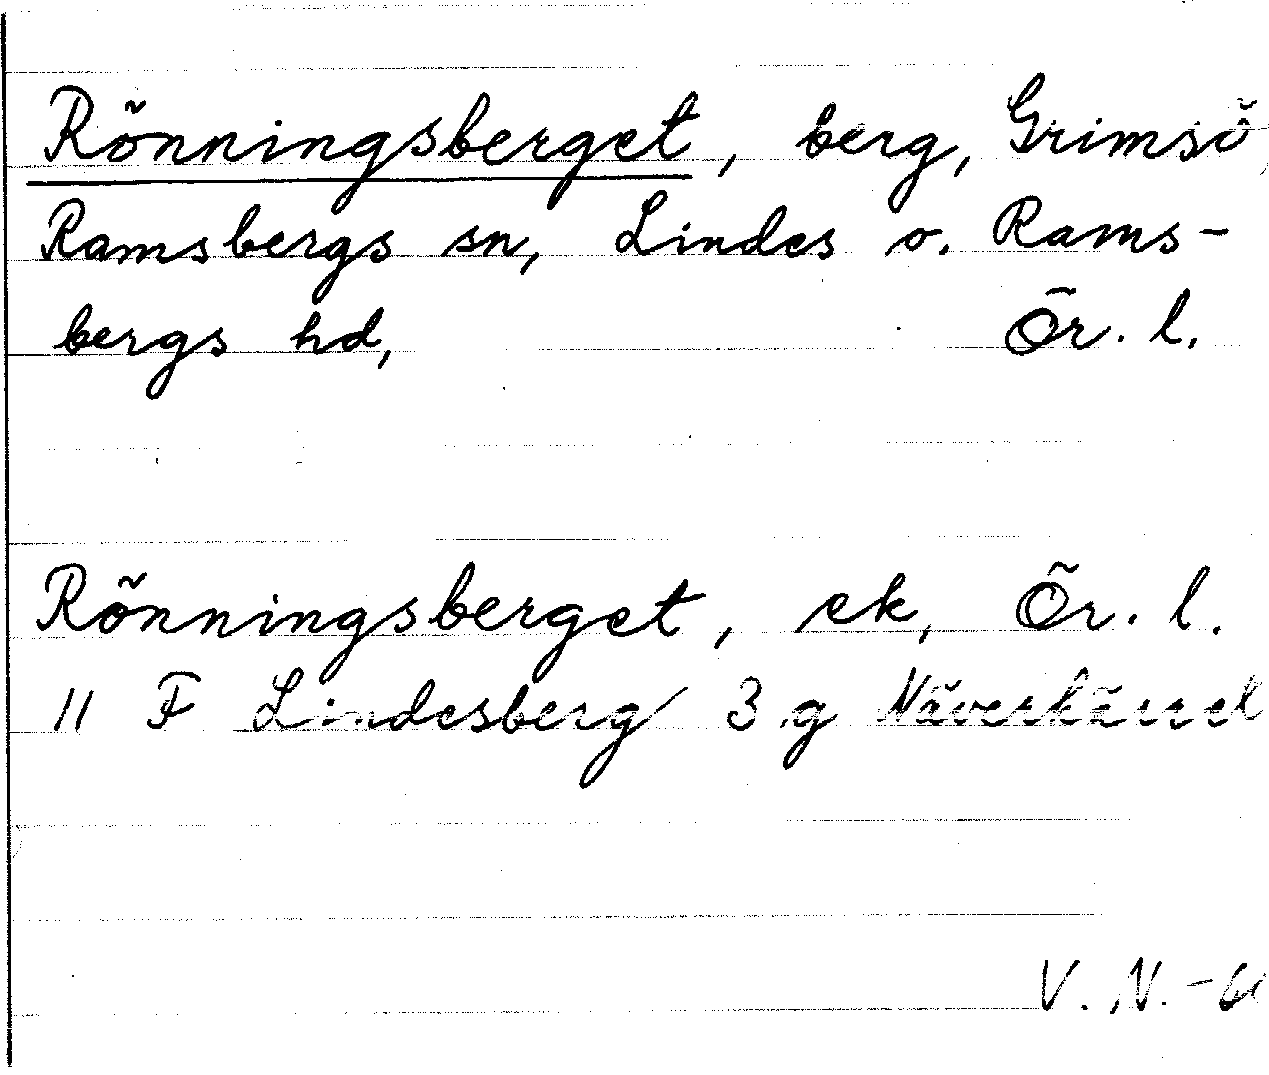 Rönningsberget, berg, Grimsö,
Ramsbergs sn, Lindes o. Rams-
bergs hd, Ör. l.
Rönningsberget, ek, Ör. l.
11 F Lindesberg 3 g Näverkärret
V. N. -